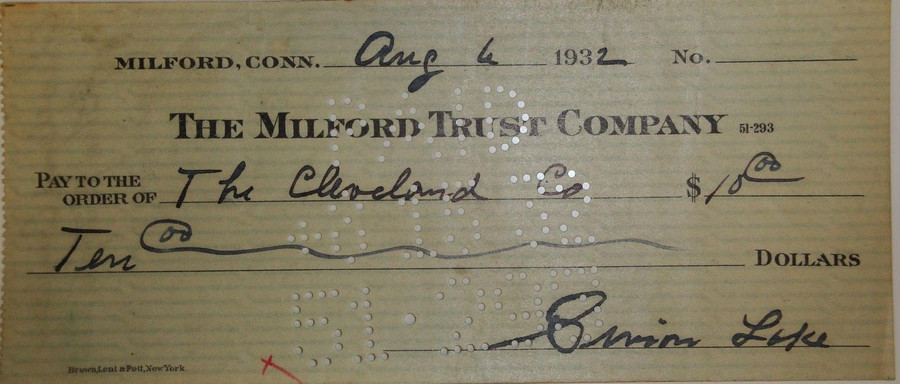 MILFORD, CONN. Aug 6 1932 No.
THE MILFORD TRUST COMPANY 51-293
PAY TO THE ORDER OF The Cleveland Co $10 00
Ten 00 DOLLARS
Simon Lake
Brown, Lent & Pett, New York.